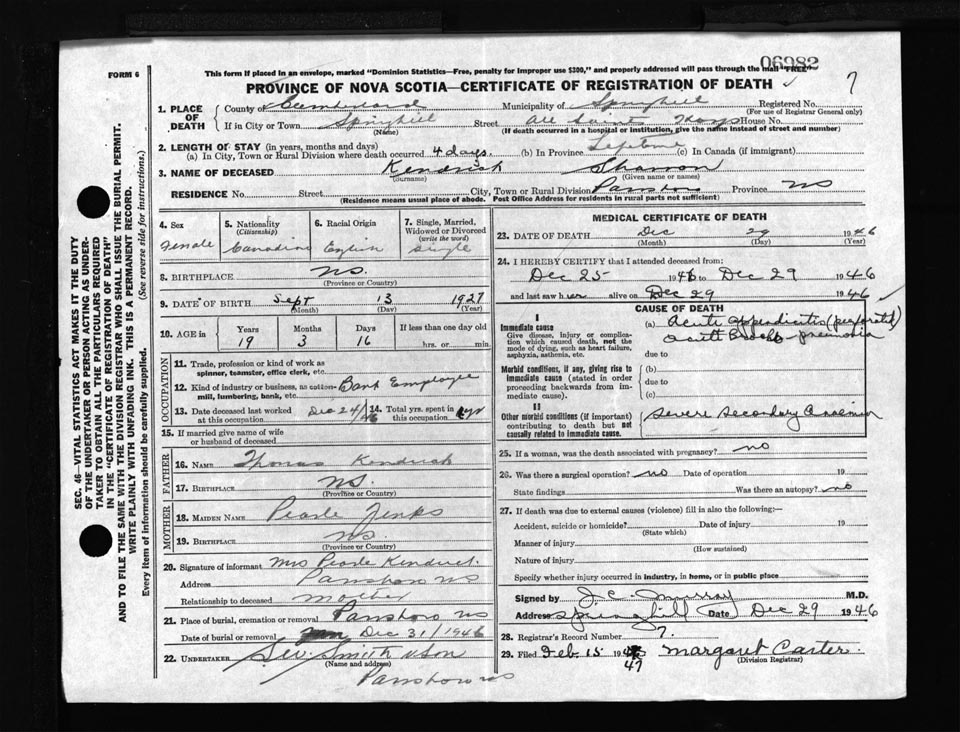 06982
FORM 6
This form if placed in an envelope, marked "Dominion Statistics—Free, penalty for improper use $300," and properly addressed will pass through the mail "FREE"
PROVINCE OF NOVA SCOTIA—CERTIFICATE OF REGISTRATION OF DEATH
7
1. PLACE OF DEATH
County of Cumberland Municipality of Springhill Registered No.
(For use of Registrar General only)
If in City or Town Springhill Street All Saints Hosp House No.
(Name) (If death occurred in a hospital or institution, give the name instead of street and number)
2. LENGTH OF STAY (in years, months and days)
(a) In City, Town or Rural Division where death occurred 4 days. (b) In Province Lifetime (c) In Canada (if immigrant)
3. NAME OF DECEASED Kendrick Sharron
(Surname) (Given name or names)
RESIDENCE No. Street City, Town or Rural Division Parrsboro Province NS
(Residence means usual place of abode. Post Office Address for residents in rural parts not sufficient)
4. Sex
Female
5. Nationality
(Citizenship)
Canadian
6. Racial Origin
English
7. Single, Married, Widowed or Divorced
(write the word)
Single
8. BIRTHPLACE NS.
(Province or Country)
9. DATE OF BIRTH Sept 13 1927
(Month) (Day) (Year)
10. AGE in
Years Months Days If less than one day old
19 3 16 hrs. or min.
OCCUPATION
11. Trade, profession or kind of work as spinner, teamster, office clerk, etc.
12. Kind of industry or business, as cotton mill, lumbering, bank, etc. Bank Employee
13. Date deceased last worked at this occupation Dec 24/46
14. Total yrs. spent in this occupation yr
15. If married give name of wife or husband of deceased
FATHER
16. NAME Thomas Kendrick
17. BIRTHPLACE NS.
(Province or Country)
MOTHER
18. MAIDEN NAME Pearle Jenks
19. BIRTHPLACE NS.
(Province or Country)
20. Signature of informant Mrs Pearle Kendrick
Address Parrsboro NS
Relationship to deceased mother
21. Place of burial, cremation or removal Parrsboro NS
Date of burial or removal Dec 31/1946
22. UNDERTAKER Smith & Son
(Name and address)
Parrsboro NS
MEDICAL CERTIFICATE OF DEATH
23. DATE OF DEATH Dec 29 1946
(Month) (Day) (Year)
24. I HEREBY CERTIFY that I attended deceased from:
Dec 25 1946 to Dec 29 1946
and last saw her alive on Dec 29 1946
CAUSE OF DEATH
I
Immediate cause
Give disease, injury or complication which caused death, not the mode of dying, such as heart failure, asphyxia, asthenia, etc.
(a) Acute appendicitis (perforated)
acute Broncho-pneumonia
due to
Morbid conditions, if any, giving rise to immediate cause (stated in order proceeding backwards from immediate cause).
(b)
due to
(c)
II
Other morbid conditions (if important) contributing to death but not causally related to immediate cause.
Severe Secondary Anaemia
25. If a woman, was the death associated with pregnancy? no
26. Was there a surgical operation? no Date of operation 19
State findings Was there an autopsy? no
27. If death was due to external causes (violence) fill in also the following:—
Accident, suicide or homicide? Date of injury 19
(State which)
Manner of injury
(How sustained)
Nature of injury
Specify whether injury occurred in industry, in home, or in public place
Signed by J.C. Murray M.D.
Address Springhill Date Dec 29 1946
28. Registrar's Record Number 7.
29. Filed Feb. 15 1947 Margaret Carter.
(Division Registrar)
SEC. 46—VITAL STATISTICS ACT MAKES IT THE DUTY
OF THE UNDERTAKER OR PERSON ACTING AS UNDERTAKER
TO OBTAIN ALL THE PARTICULARS REQUIRED
IN THE "CERTIFICATE OF REGISTRATION OF DEATH"
AND TO FILE THE SAME WITH THE DIVISION REGISTRAR WHO SHALL ISSUE THE BURIAL PERMIT.
WRITE PLAINLY WITH UNFADING INK. THIS IS A PERMANENT RECORD.
Every item of information should be carefully supplied. (See reverse side for instructions.)